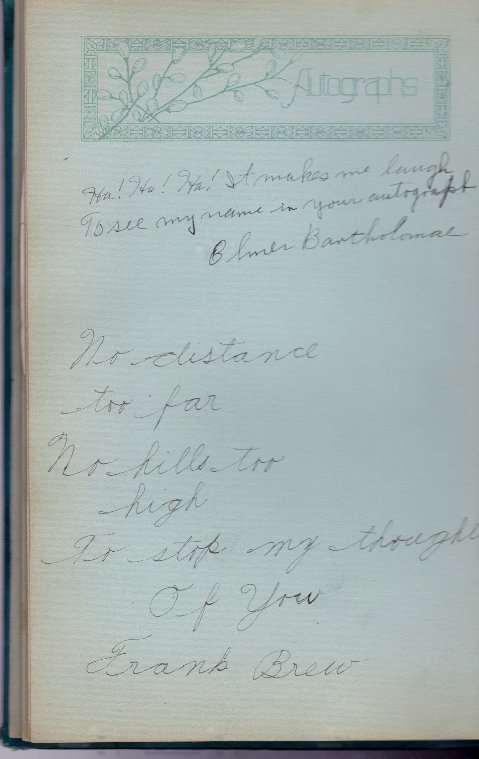 Autographs
Ha! Ha! Ha! It makes me laugh
To see my name in your autograph
Elmer Bartholomae
No distance
too far
No hills too
high
To stop my thought
Of You
Frank Brew